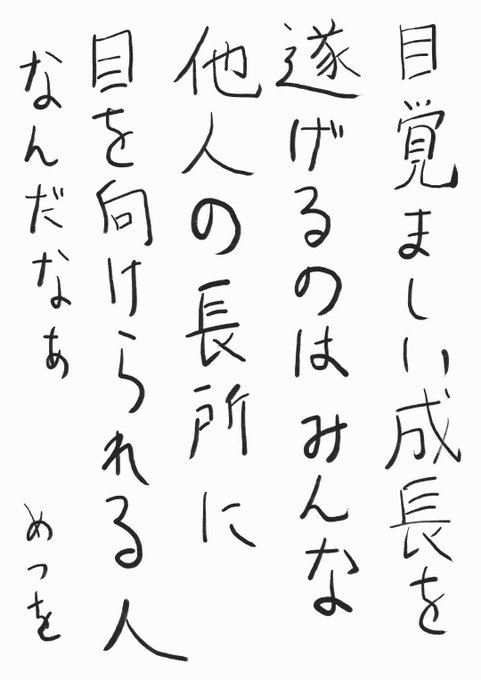 目覚ましい成長を
遂げるのはみんな
他人の長所に
目を向けられる人
なんだなぁ
めっを